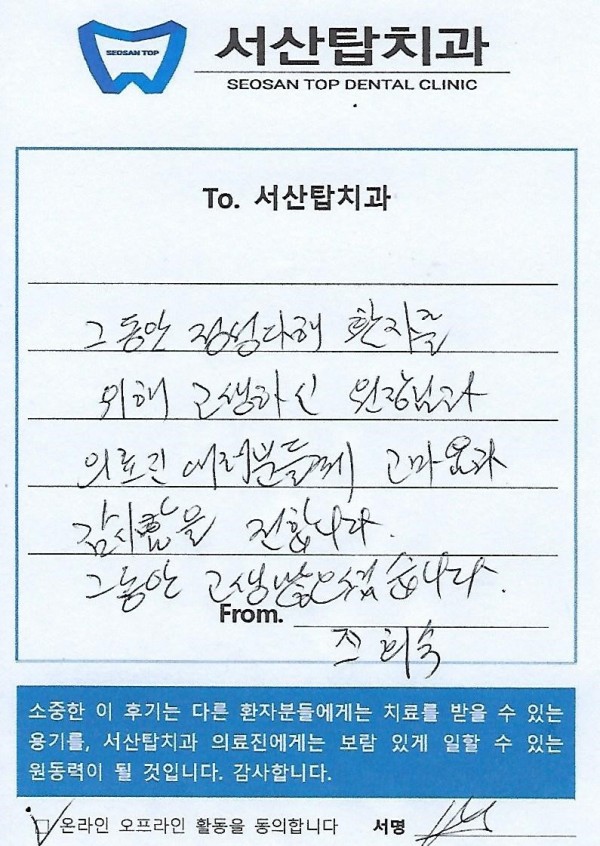 SEOSAN TOP
서산탑치과
SEOSAN TOP DENTAL CLINIC
To. 서산탑치과
그동안 정성다해 환자를
위해 고생하신 원장님과
의료진 여러분들께 고마움과
감사함을 전합니다.
그동안 고생많으셨습니다.
From.
조희숙
소중한 이 후기는 다른 환자분들에게는 치료를 받을 수 있는
용기를, 서산탑치과 의료진에게는 보람 있게 일할 수 있는
원동력이 될 것입니다. 감사합니다.
온라인 오프라인 활동을 동의합니다 서명